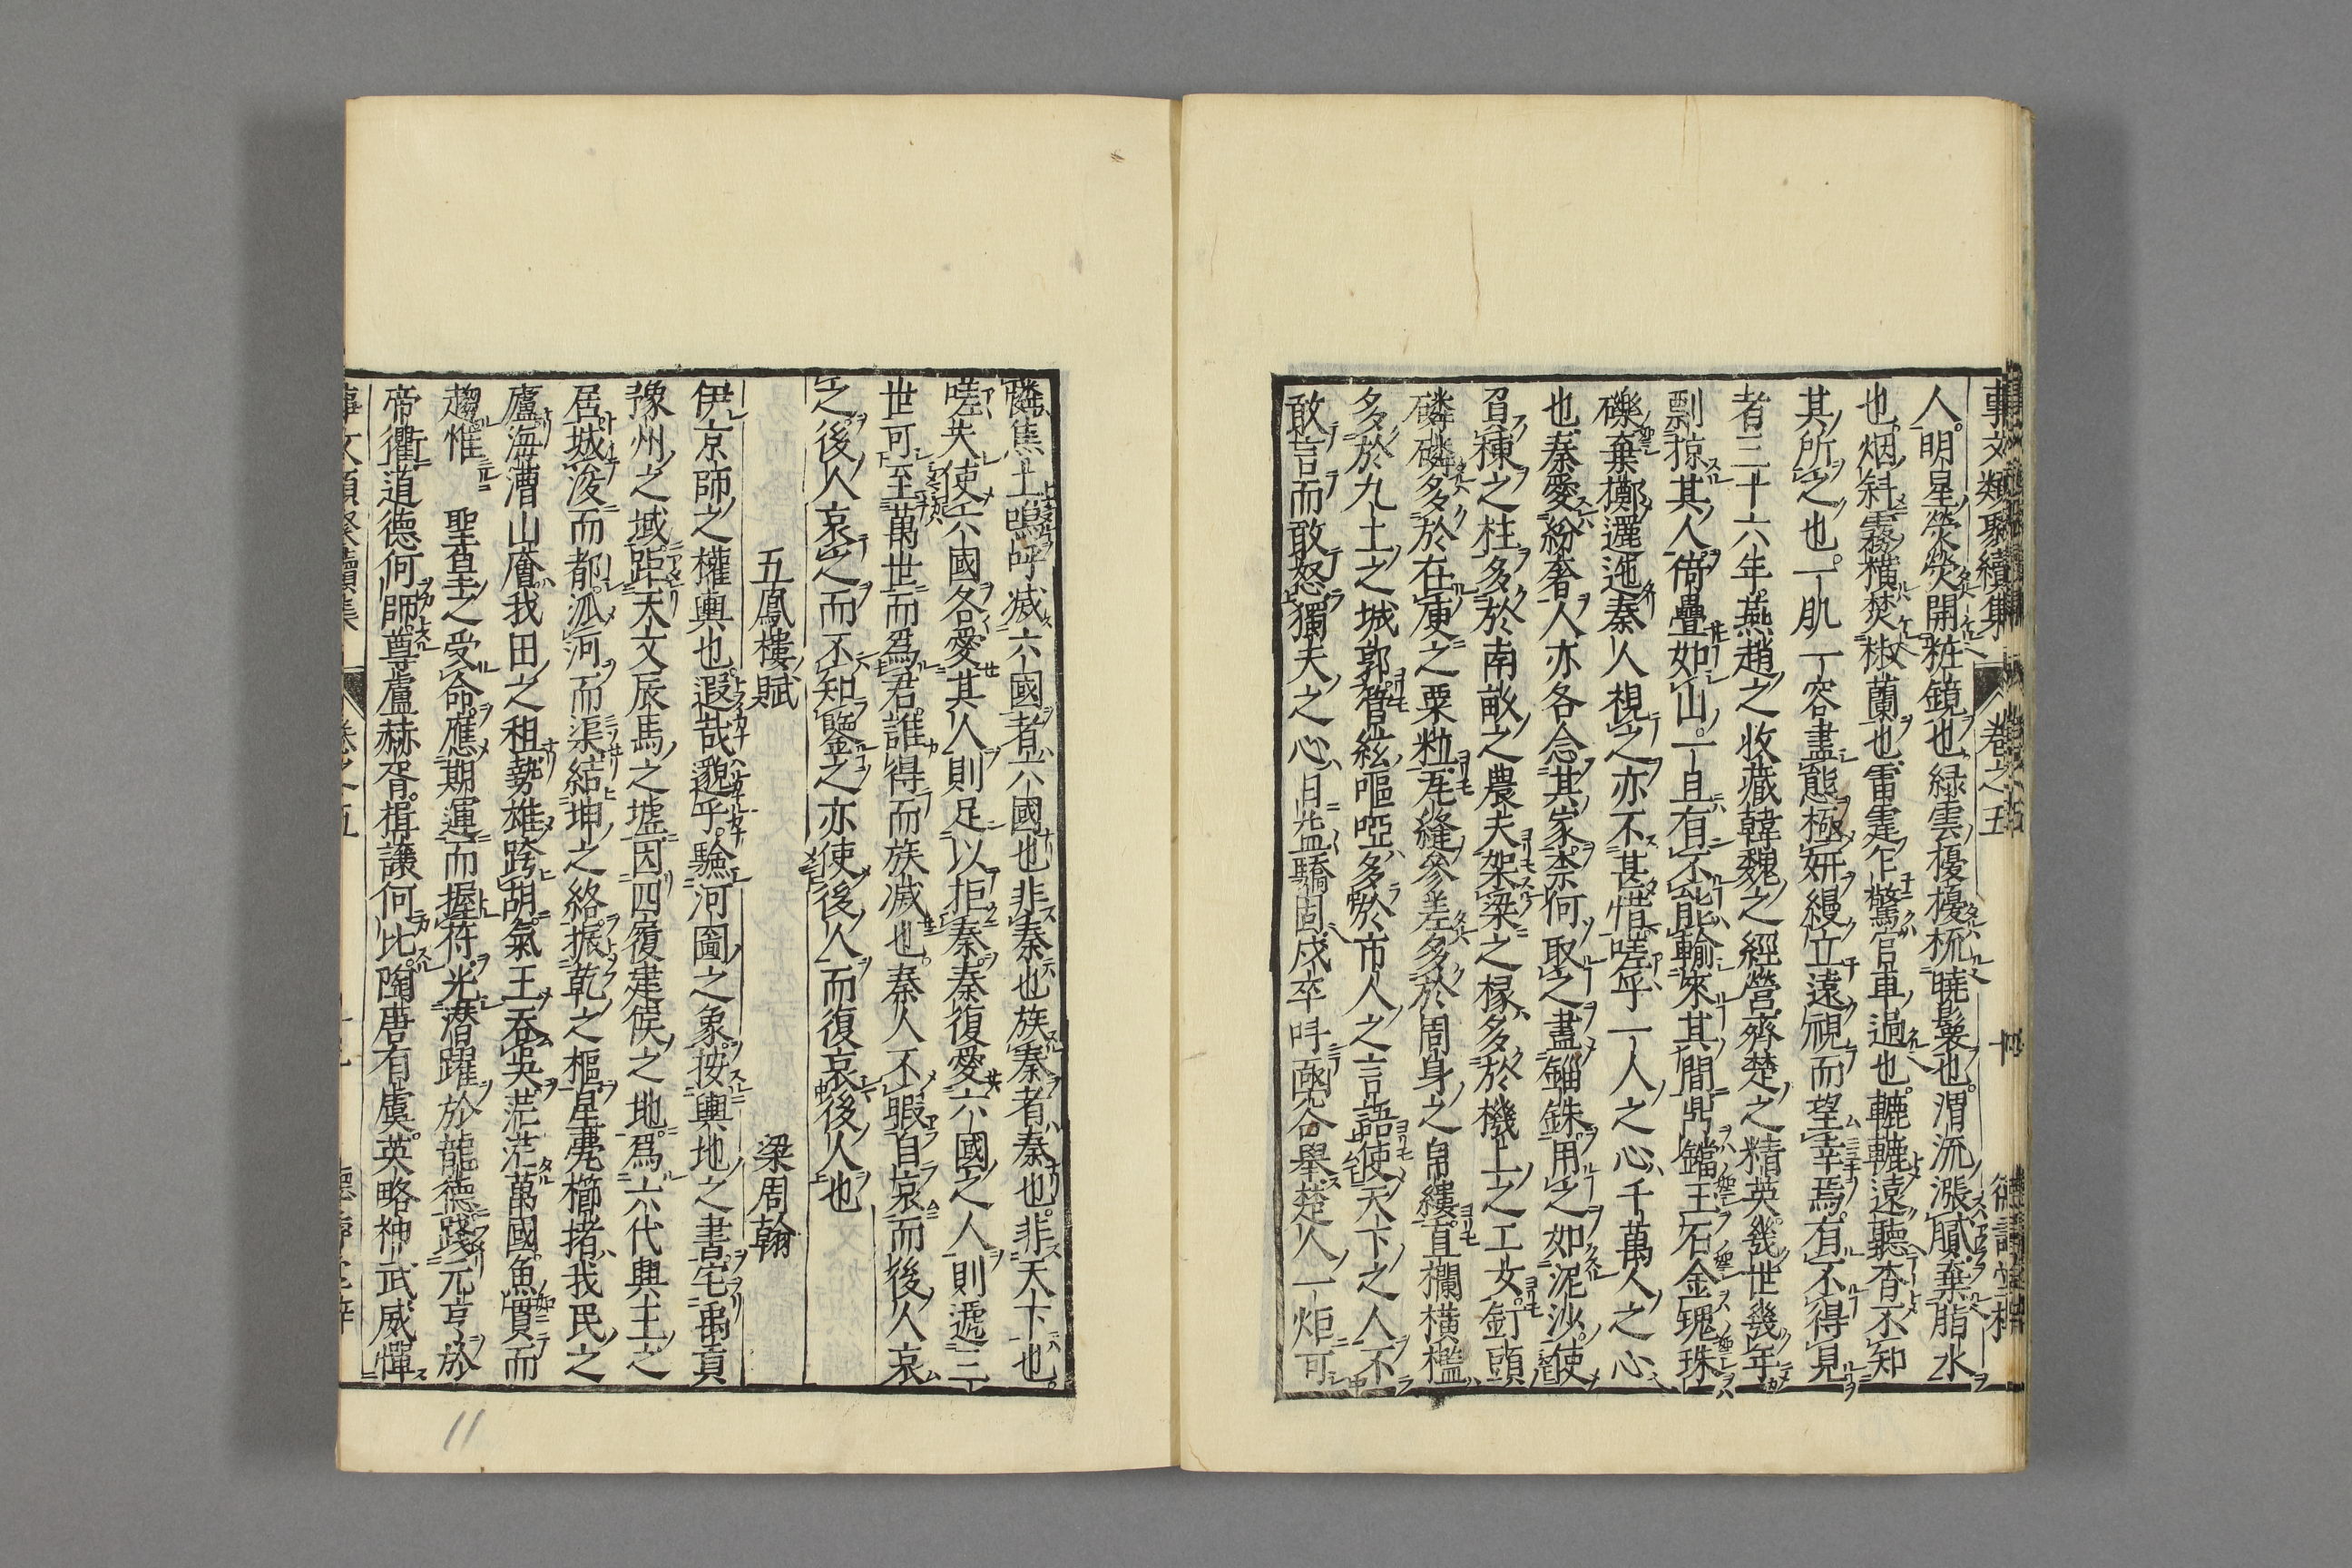 事文類聚續集 卷之五 十四
人明星熒熒開粧鏡也緑雲擾擾梳曉鬟也渭流漲膩棄脂水
也烟斜霧橫焚椒蘭也雷霆乍驚宮車過也轆轆遠聽杳不知
其所之也一肌一容盡態極妍縵立遠視而望幸焉有不得見
者三十六年燕趙之收藏韓魏之經營齊楚之精英幾世幾年
剽掠其人倚疊如山一旦有不能輸來其間鼎鐺玉石金瑰珠
礫棄擲邐迤秦人視之亦不甚惜嗟乎一人之心千萬人之心
也秦愛紛奢人亦各念其家柰何取之盡錙銖用之如泥沙使
負棟之柱多於南畝之農夫架梁之椽多於機上之工女釘頭
磷磷多於在庾之粟粒瓦縫參差多於周身之帛縷直欄橫檻
多於九土之城郭管絃嘔啞多於市人之言語使天下之人不
敢言而敢怒獨夫之心日益驕固戍卒呌凾谷舉楚人一炬可
憐焦土嗚呼滅六國者六國也非秦也族秦者秦也非天下也
嗟夫使六國各愛其人則足以拒秦秦復愛六國之人則遞三
世可至萬世而爲君誰得而族滅也秦人不暇自哀而後人哀
之後人哀之而不知鑒之亦使後人而復哀後人也
五鳳樓賦 梁周翰
伊京師之權輿也遐哉邈乎驗河圖之象按輿地之書宅禹貢
豫州之域距天文辰馬之墟因四履建侯之地爲六代興王之
居城浚而都派河而渠結坤之絡振乾之樞星毳櫛措我民之
廬海漕山廥我田之租勢雄跨胡氣王吞吳茫茫萬國魚貫而
趨惟 聖皇之受命應期運而握符光潛躍於龍德踐元亨於
帝衢道德何師尊盧赫胥揖讓何比陶唐有虞英略神武威憚
事文類聚續集 卷之五
11